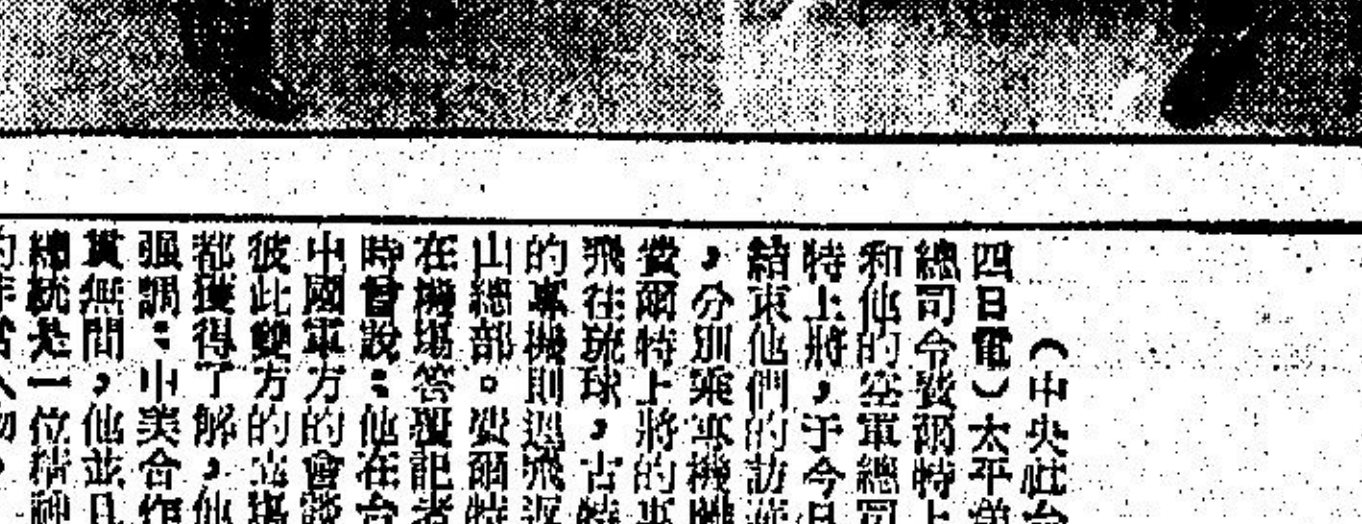 （中央社台
四日電）太平洋
總司令費爾特上
和他的空軍總司
特上將，于今日
結束他們的訪
，分別乘專機離
費爾特上將的專
飛往琉球，古特
的專機則逕飛返
山總部。費爾特
在機場答覆記者
時曾說：他在台
中國軍方的會談
彼此雙方的立場
都獲得了解，他
强調：中美合作
無間，他並且
總統是一位精神